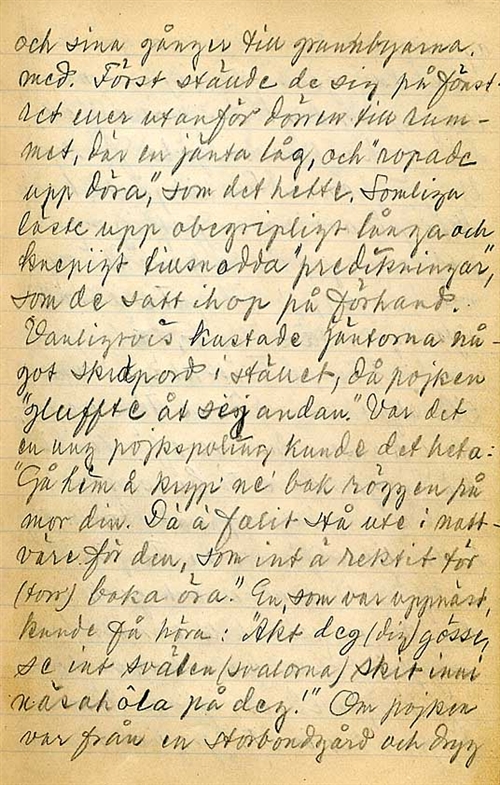 och sina gånger till grannbyarna.
med. Först stände de sig på fönst-
ret eller utanför dörren till rum-
met, där en jänta låg, och "ropade
upp döra," som det hette. Somliga
läste upp obegripligt långa och
knepigt tillsnodda "predikningar",
som de satt ihop på förhand.
Vanligtvis kastade jäntorna nå-
got skidpord i stället, då pojken
"gluffte åt sig andan." Var det
en ung pojkspoling kunde det heta:
"Gå hem å kryp ne bak röggen på
mor din. Dä ä falit stå ute i natt-
väre för den, som int ä rektit tör
(torr) baka öra." En, som var uppnäst,
kunde få höra: "Akt deg (dig) gösse,
se int svälen (svalorna) skit inni
näsahôla på deg!" Om pojken
var från en storbondgård och dryg